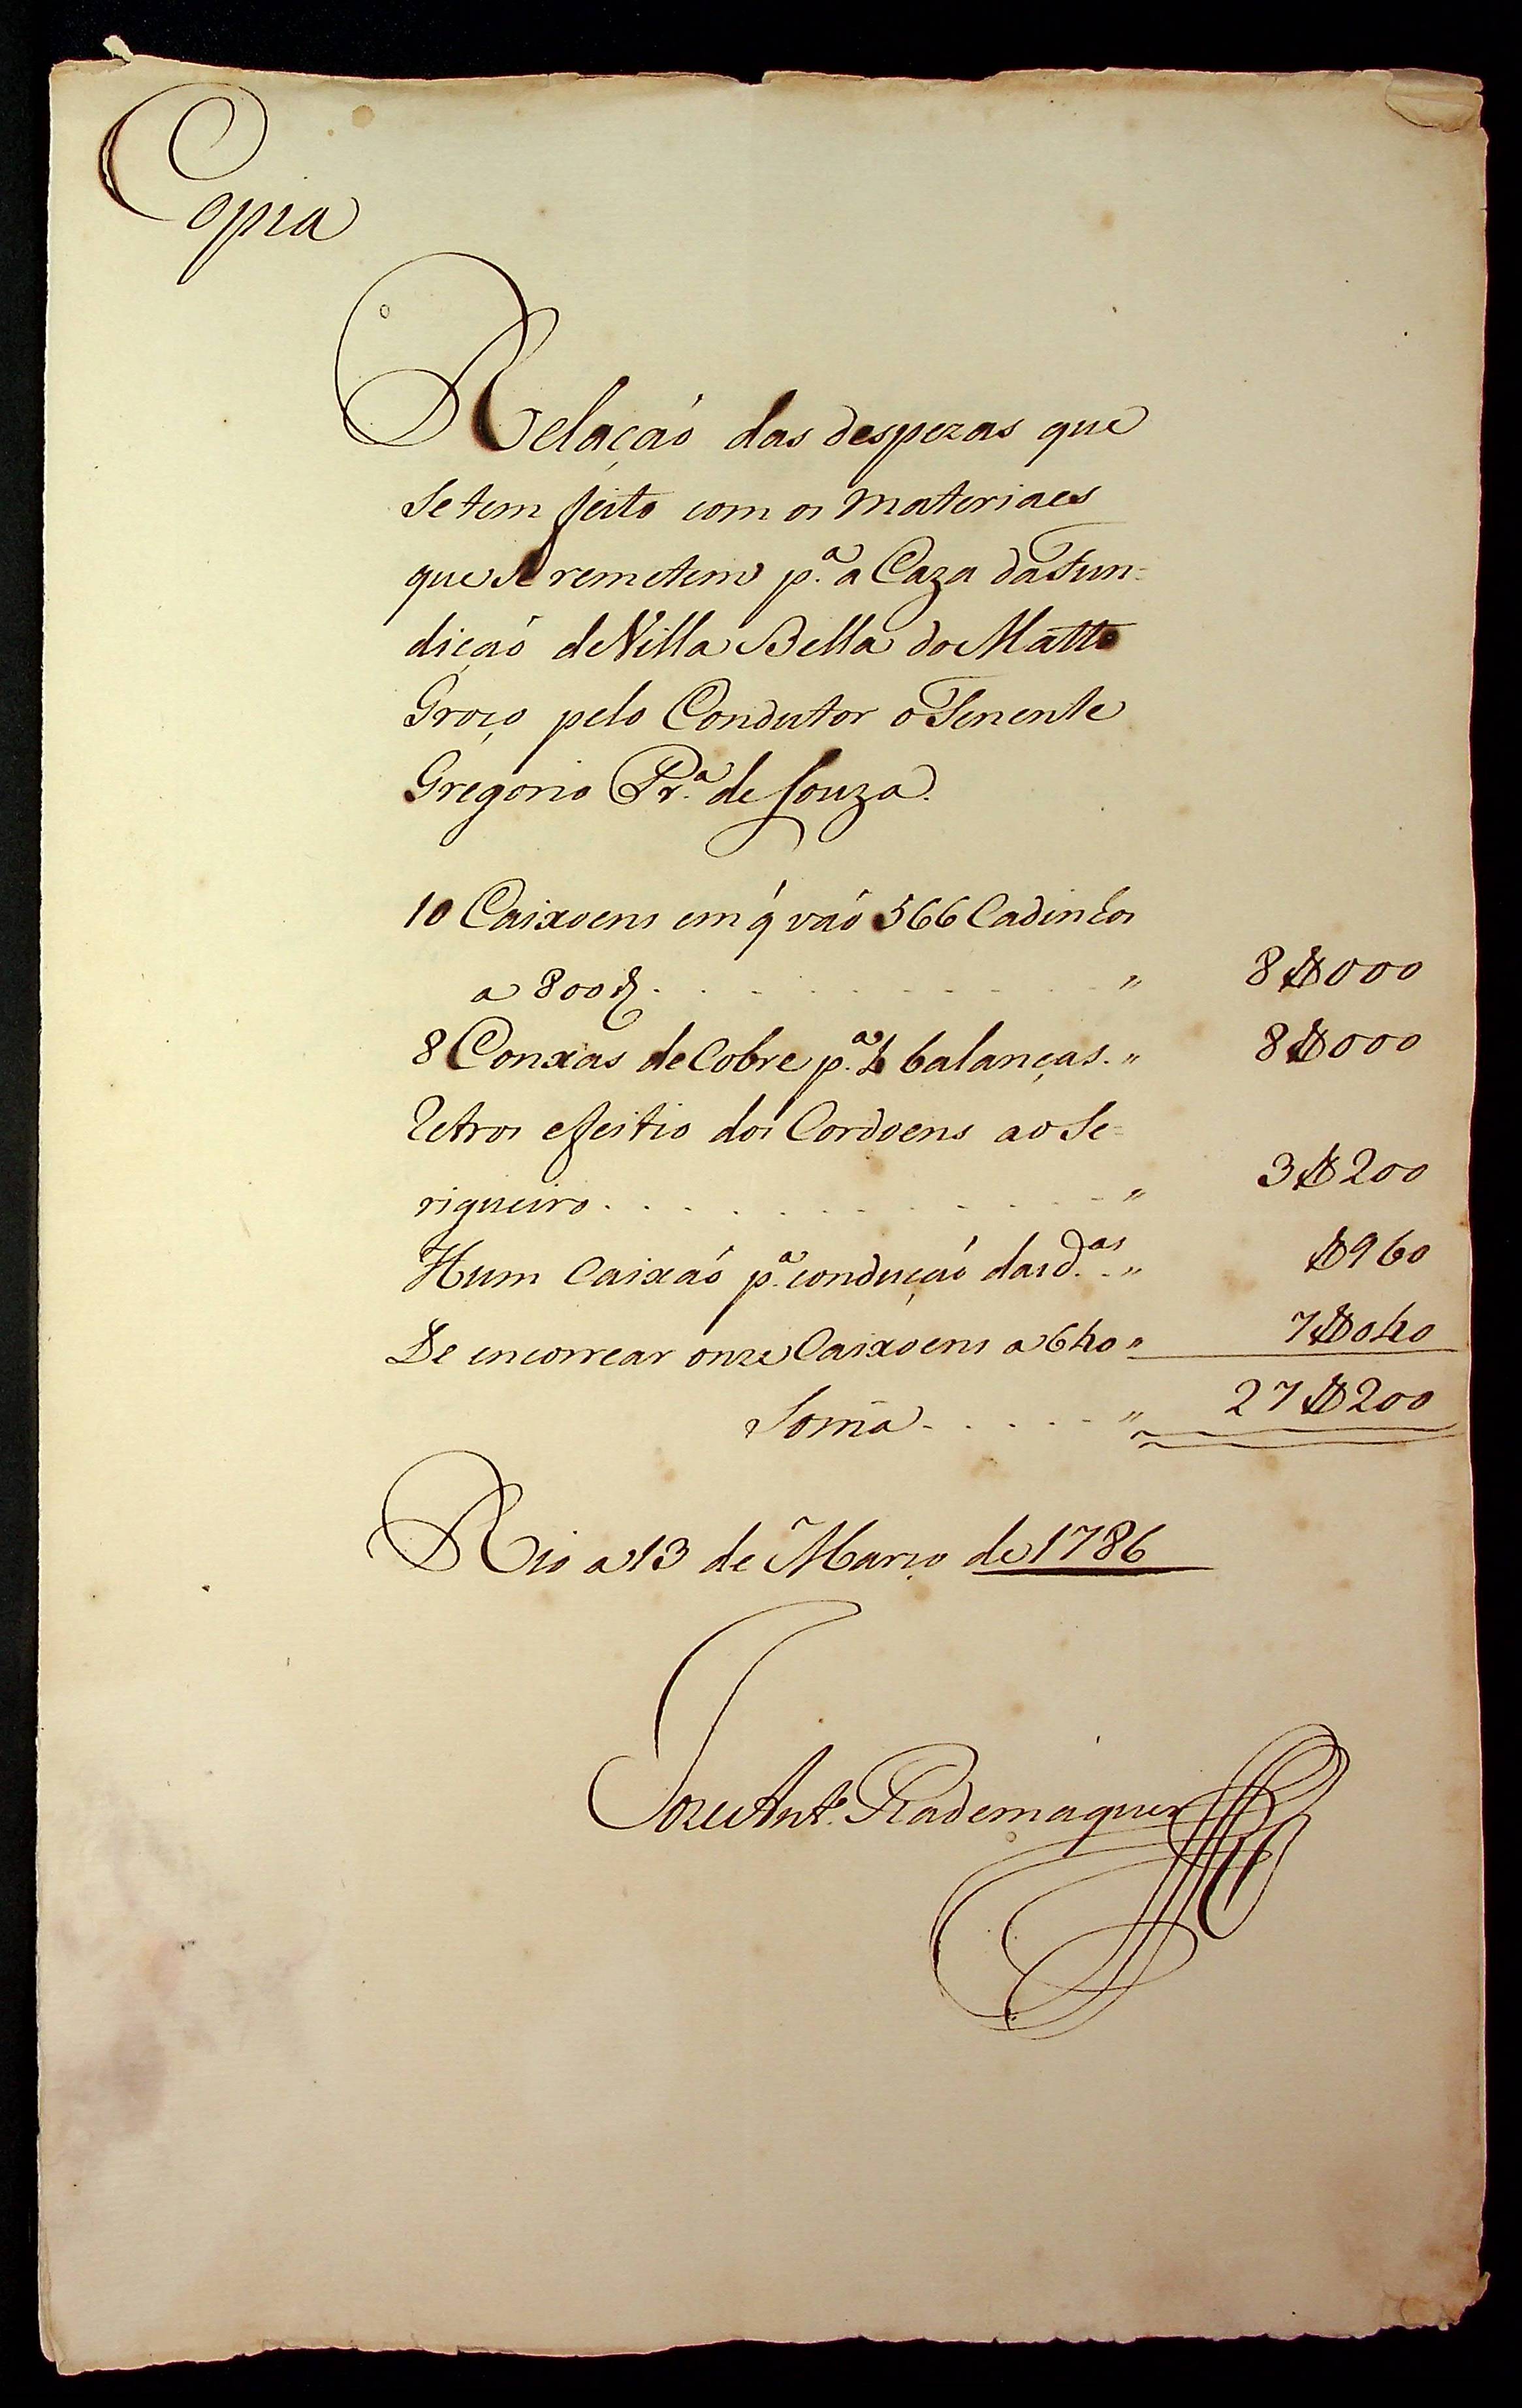 Copia
Relaçaó das despezas que
se tem feito com os materiaes
que se remetem p.ª a Caza da Fun=
diçaó de Villa Bella do Matto
Groço pelo Condutor o Tenente
Gregorio Pr.ª de Souza.
10 Caixoens em q́ vaó 566 Cadinhos
a 800 r.s . . . . . . . . . . " 8$000
8 Conxas de Cobre p.ª 4 balanças. " 8$000
Retros e feitio dos Cordoens ao Se=
rigueiro . . . . . . . . . . " 3$200
Hum Caixaó p.ª conduçaó das d.as " $960
De encorrear onze Caixoens a 640 " 7$040
Soma . . . . . " 27$200
Rio a 13 de Março de 1786
Joze Ant.º Rademaquer